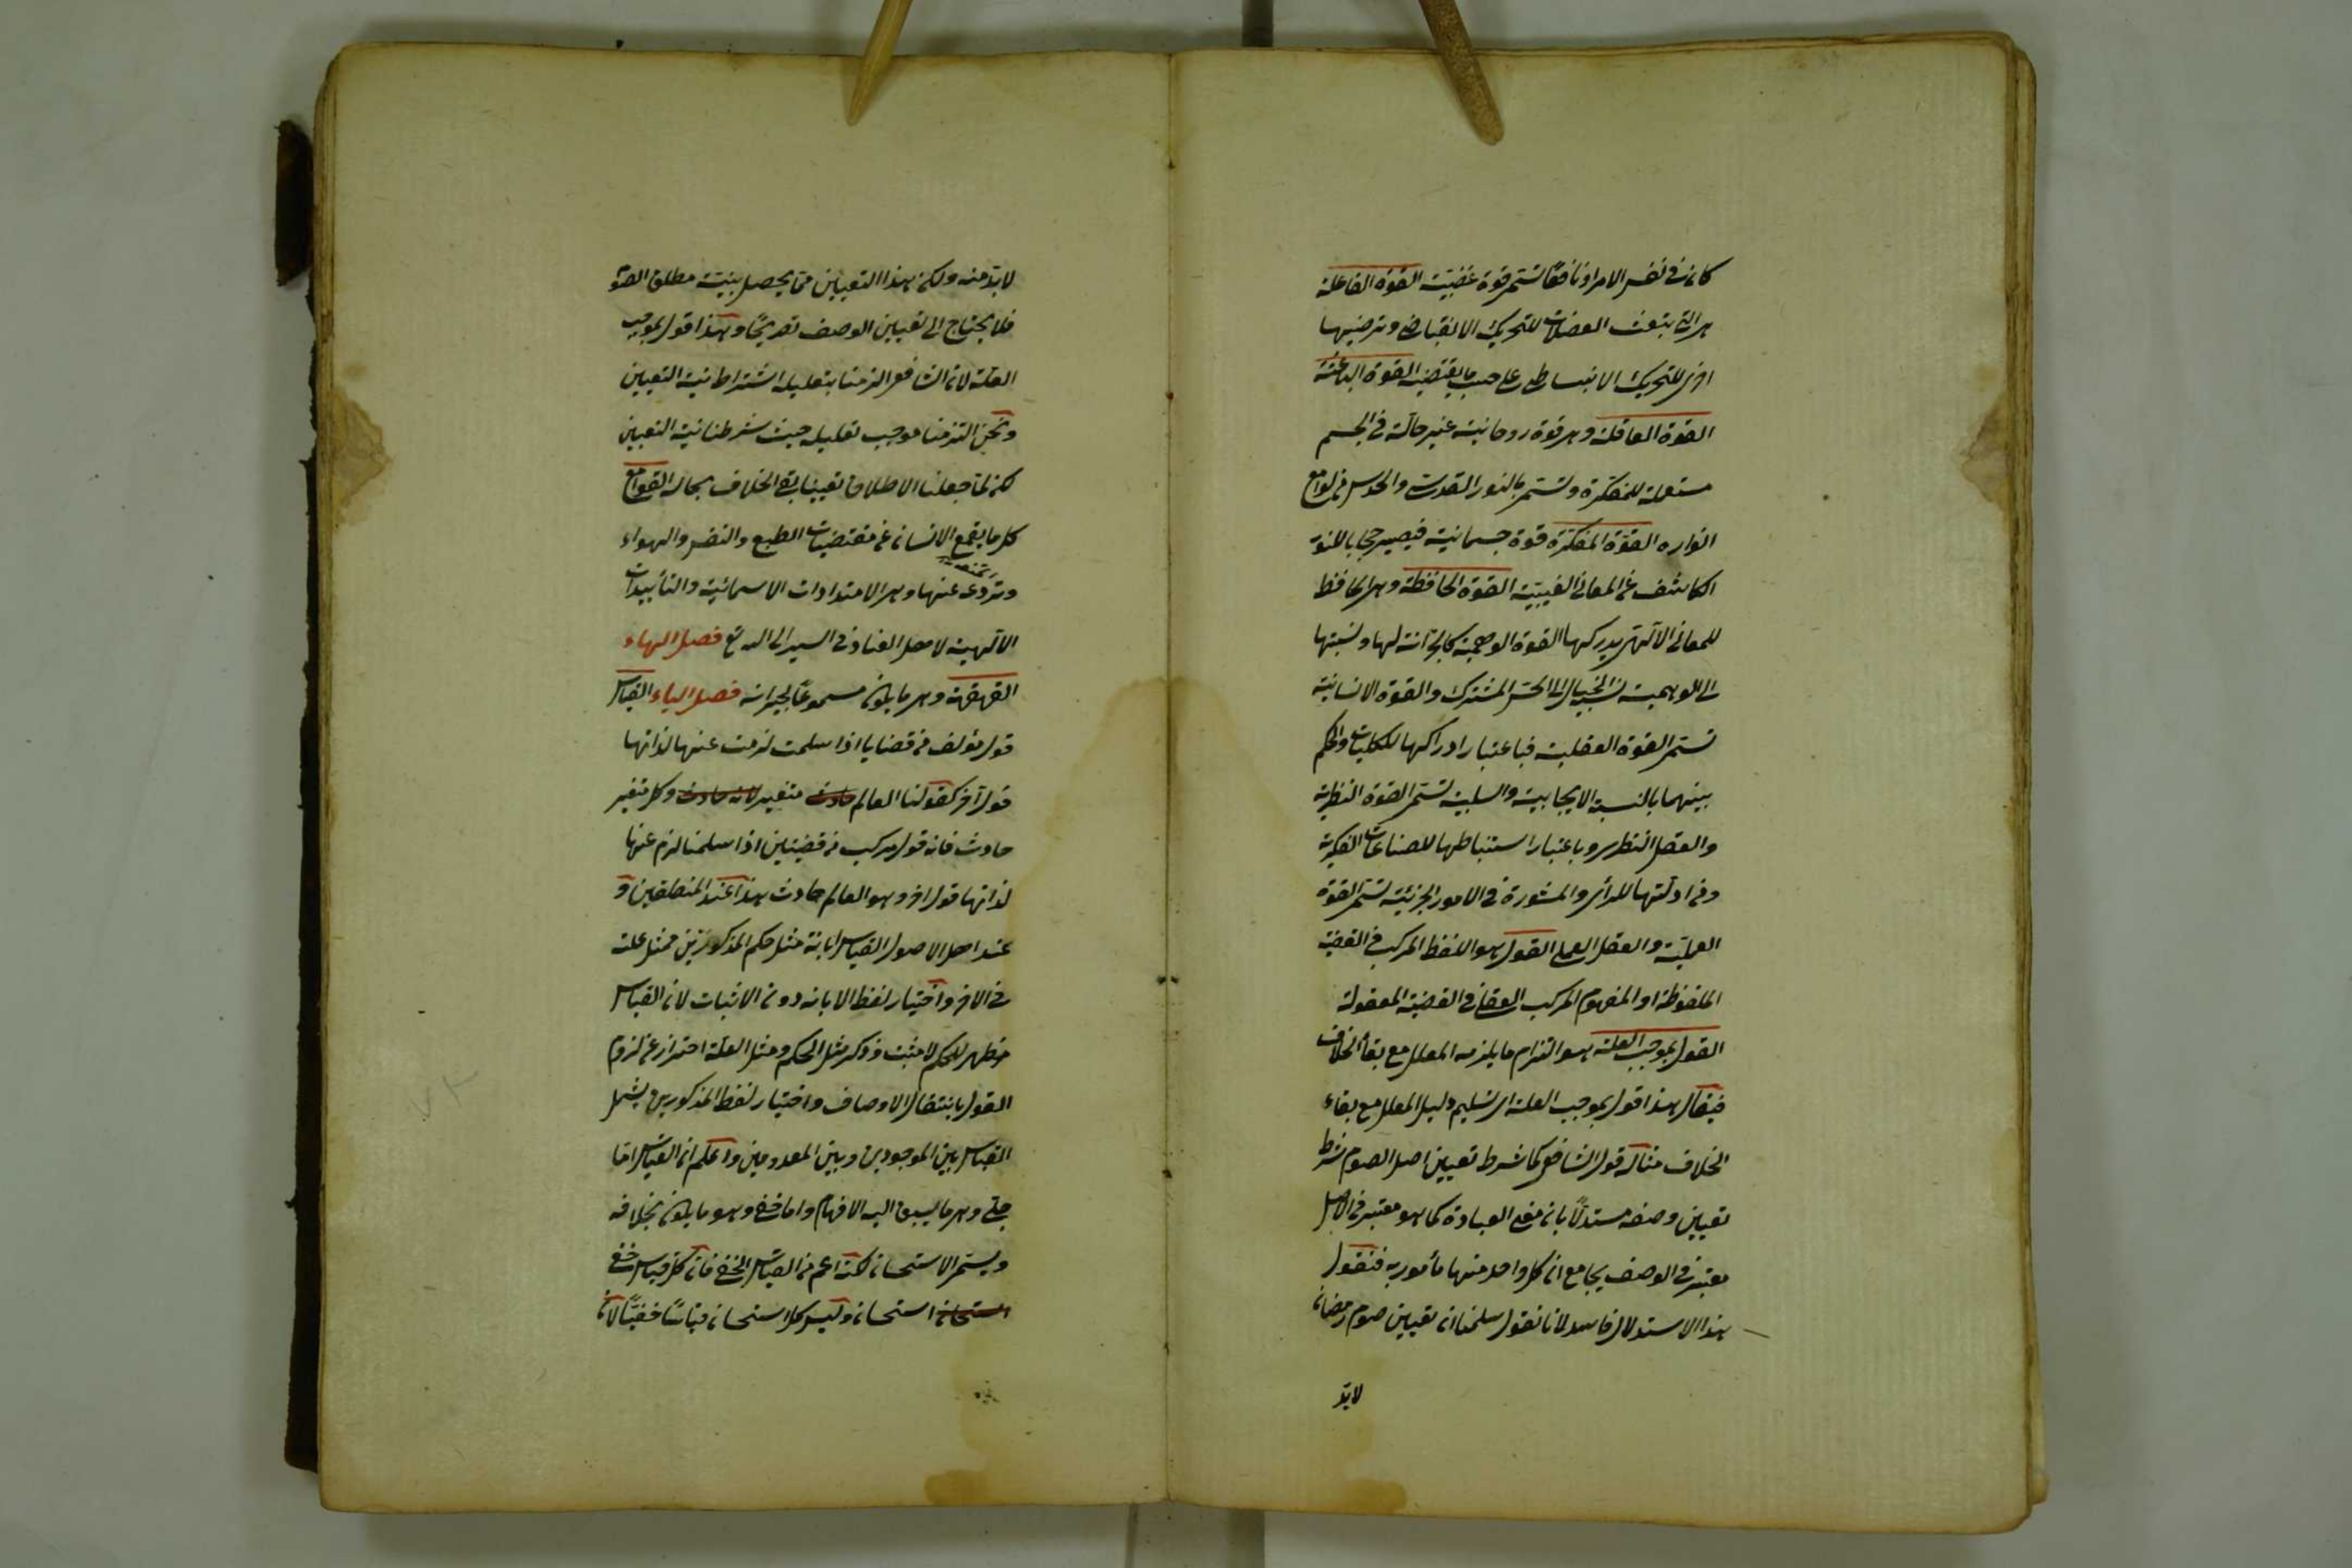 كان في نفس الامر او نافعًا تسمى قوة غضبيّة القوة الفاعلة
هى التى تبعث العضلات للتحريك الانقباضى وترخيها
اخرى للتحريك الانبساطى على حسب ما يقتضيه القوة الباعثة
القوة العاقلة وهى قوة روحانية غير حالّة في الجسم
مستعملة للمفكرة وتسمى بالنور القدسى والحدس من لوامع
انواره القوة المفكرة قوة جسمانية فيصير حجابا للنور
الكاشف عن المعانى الغيبيّة القوة الحافظة وهى الحافظ
للمعانى الآلتى يدركها القوة الوهمية كالخزانة لها ونسبتها
الى الوهمية نسبة الخيال الى الحس المشترك والقوة الانسانية
تسمى القوة العقلية فباعتبار ادراكها للكليات والحكم
بينهما بالنسبة الايجابية والسلبية تسمى القوة النظرية
والعقل النظرى وباعتبار استنباطها للصناعات الفكرية
ومزاولتها للرأى والمشورة في الامور الجزئية تسمى القوة
العمليّة والعقل العملى القول هو اللفظ المركب في القضية
الملفوظة او المفهوم المركب العقلى في القضية المعقولة
القول بموجب العلة هو التزام ما يلزمه المعلل مع بقاء الخلاف
فيقال هذا قول بموجب العلة اى تسليم دليل المعلل مع بقاء
الخلاف مثاله قول الشافعى كما شرط تعيين اصل الصوم شرط
تعيين وصفه مستدلًا بان معنى العبادة كما هو معتبر في الاصل
معتبر في الوصف بجامع ان كل واحد منها مأمور به فنقول
هذا الاستدلال فاسد لانا نقول سلمنا ان تعيين صوم رمضان
لابدّ
لابدّ منه ولكن هذا التعيين ممّا يحصل بنيّة مطلق الصوم
فلا يحتاج الى تعيين الوصف تصريحًا وهذا قول بموجب
العلّة لان الشافعى الزمنا بتعليله اشتراط نية التعيين
ونحن التزمنا موجب تعليله حيث شرطنا نية التعيين
لكن لما جعلنا الاطلاق تعيينا بقى الخلاف بحاله القوامع
كل ما يقمع الانسان عن مقتضيات الطبع والنفس والهواء
وتردعه عنها وهى الامتدادات الاسمائية والتأييدات
الآلهية لاهل العناد في السير الى الله تع فصل الهاء
القهقهة وهى ما يكون مسموعًا لجيرانه فصل الياء القياس
قول مؤلف من قضايا اذا سلمت لزمت عنها لذاتها
قول آخر كقولنا العالم حادث متغير لانه حادث وكل متغير
حادث فانه قول مركب من قضيتين اذا سلمنا لزم عنها
لذاتها قول اخر وهو العالم حادث هذا عند المنطقيين و
عند اهل الاصول القياس ابانة مثل حكم المذكورين بمثل علته
في الاخر واختيار لفظ الابانة دون الاثبات لان القياس
مظهر للحكم لا مثبت وذكر مثل الحكم ومثل العلة احتراز عن لزوم
القول بانتقال الاوصاف واختيار لفظ المذكورين يشمل
القياس بين الموجودين وبين المعدومين واعلم ان القياس امّا
جلى وهى ما يسبق اليه الافهام واما خفى وهو ما يكون بخلافه
ويسمى الاستحسان لكنه اعم من القياس الخفى فان كل قياس خفى
استحسان استحسان وليس كل استحسان قياسًا خفيًّا لان